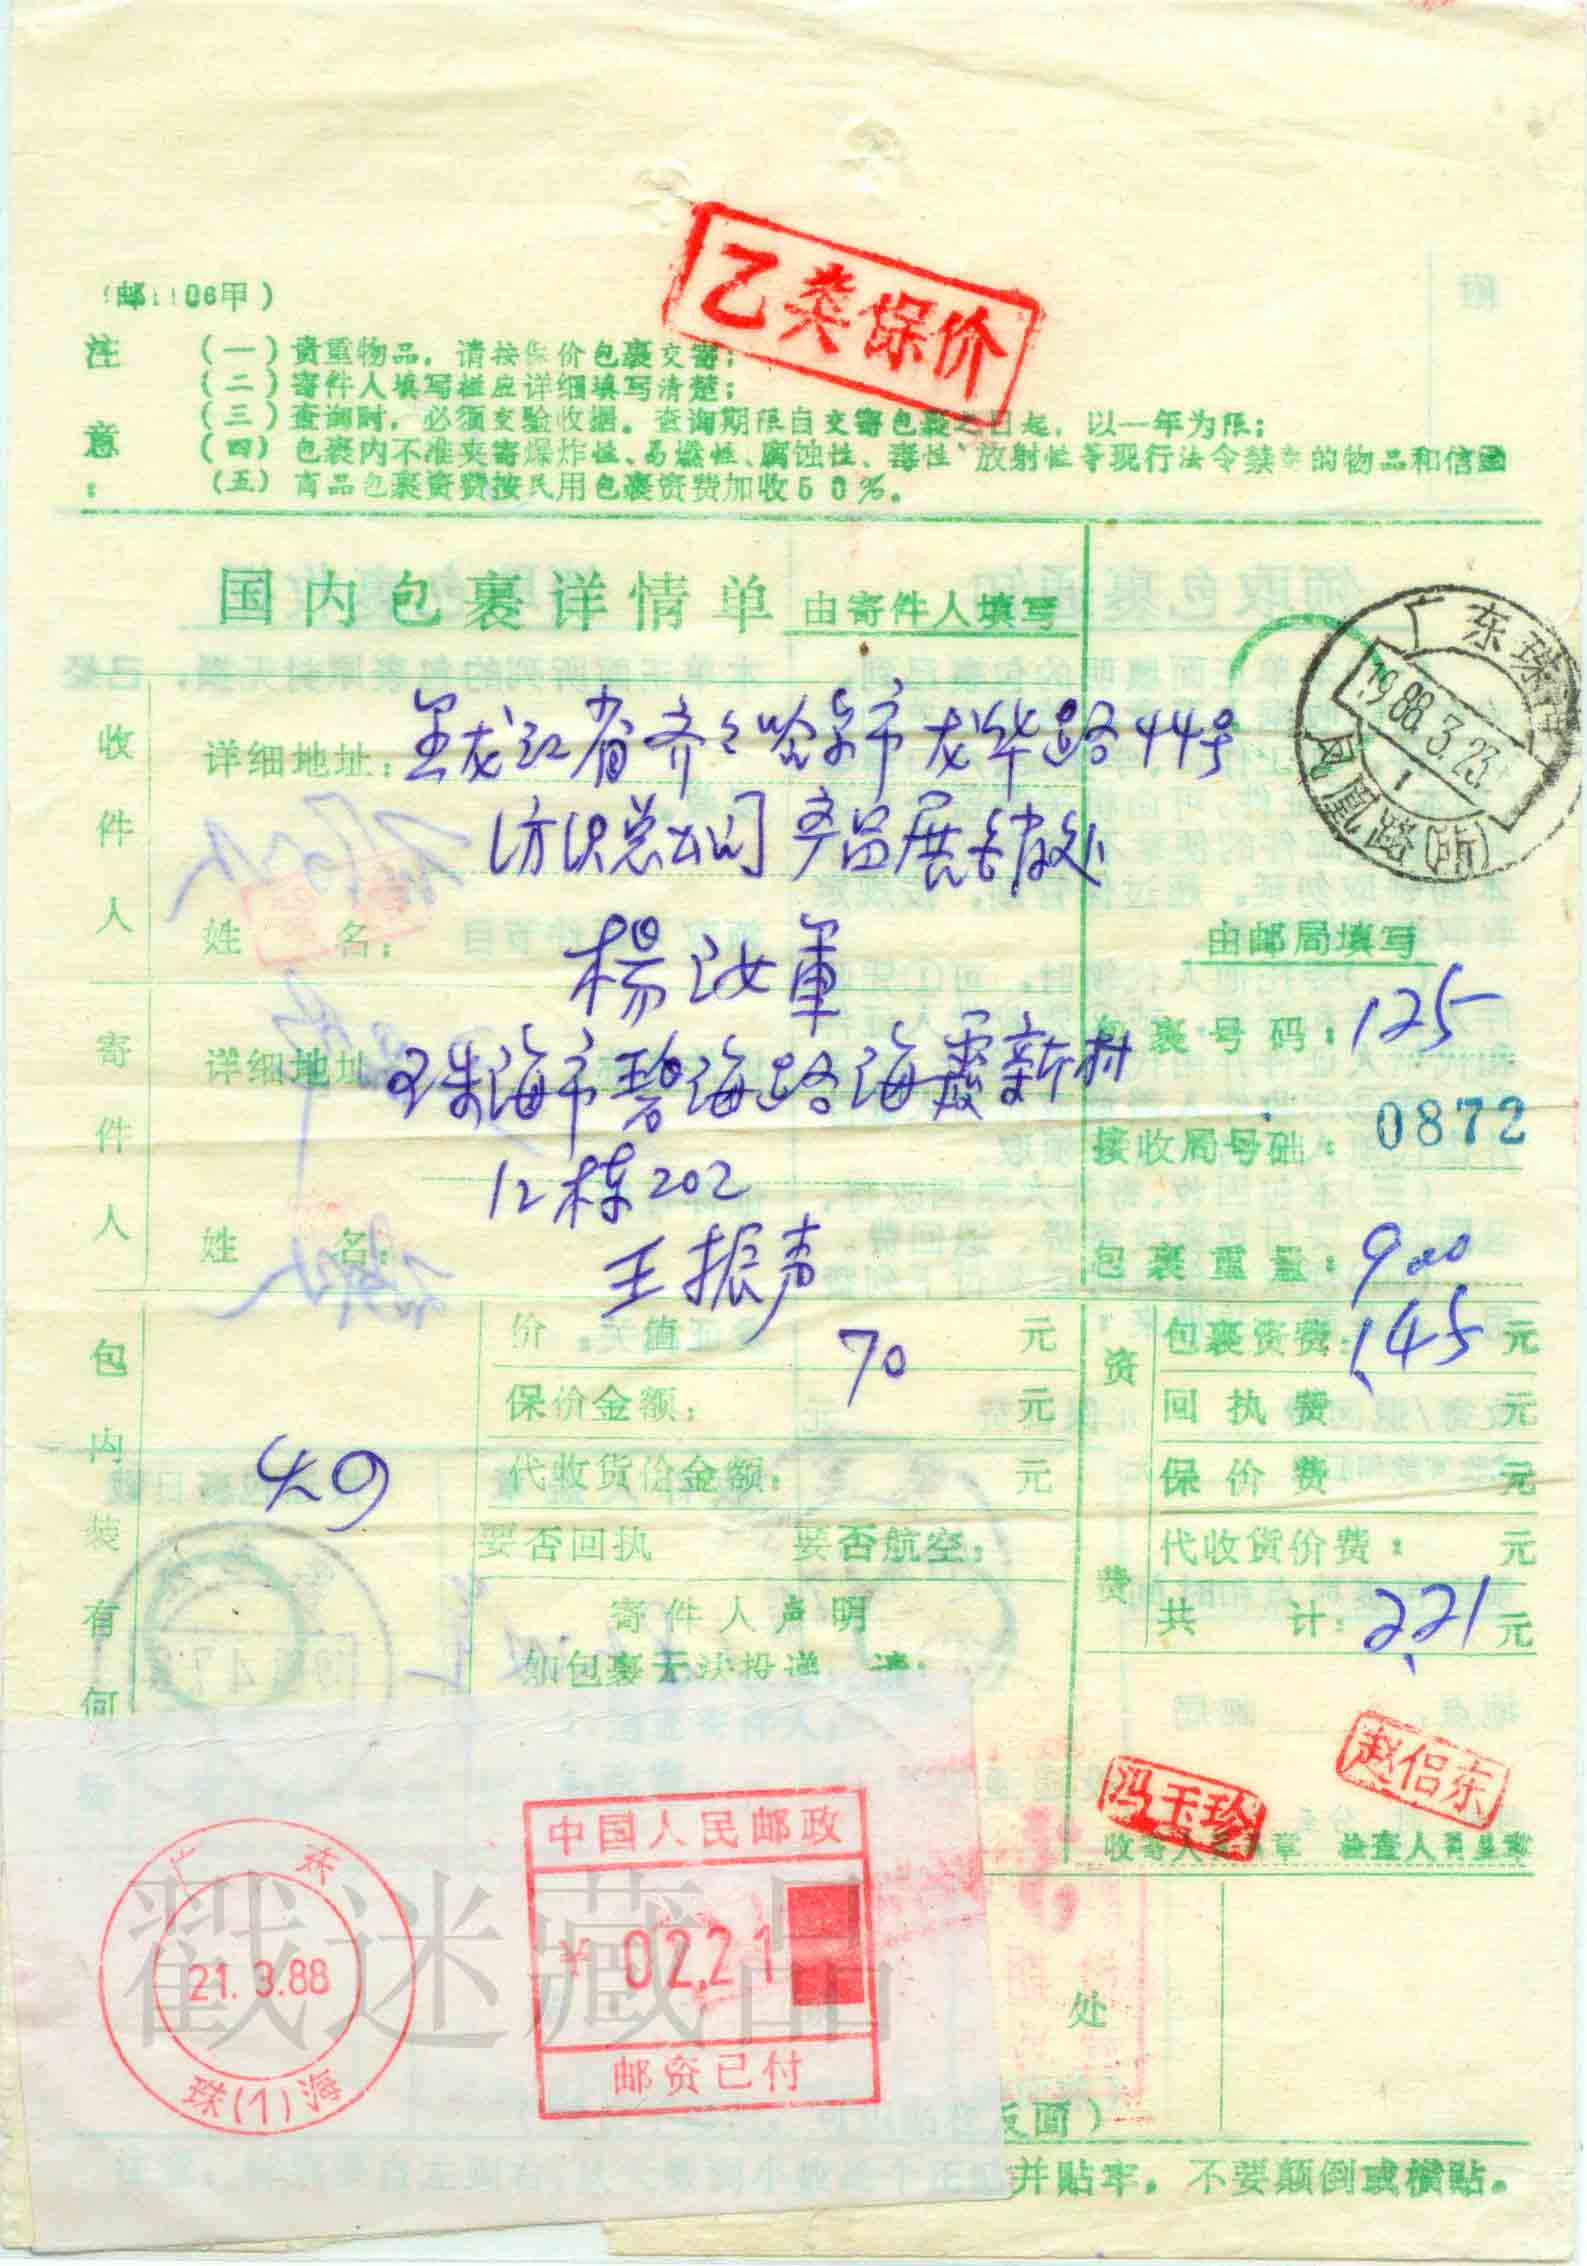 乙类保价
(邮1106甲)
注意:
(一)贵重物品,请按保价包裹交寄;
(二)寄件人填写栏应详细填写清楚;
(三)查询时,必须交验收据。查询期限自交寄包裹之日起,以一年为限;
(四)包裹内不准夹寄爆炸性、易燃性、腐蚀性、毒性、放射性等现行法令禁寄的物品和信函
(五)商品包裹资费按民用包裹资费加收50%。
国内包裹详情单 由寄件人填写
广东珠海
1988.3.23
1
凤凰路(所)
收件人
详细地址:黑龙江省齐々哈尔市龙华路44号
纺织总公司产品展销处
姓名:
楊汝軍
寄件人
详细地址 珠海市碧海路海霞新村
12栋202
姓名:
王振声
由邮局填写
包裹号码:125
接收局号码:0872
包裹重量:900
包内装有何
价值: 70 元
保价金额: 元
代收货价金额: 元
要否回执 要否航空:
寄件人声明
如包裹无法投递,请:
资费
包裹资费:1.45 元
回执费 元
保价费 元
代收货价费: 元
共计:2.21 元
冯玉珍
赵侣东
收寄人员 章 检查人员盖章
广东
21.3.88
珠(1)海
中国人民邮政
¥02.21
邮资已付
戳迷藏品
处
反面)
并贴牢。不要颠倒或横贴。